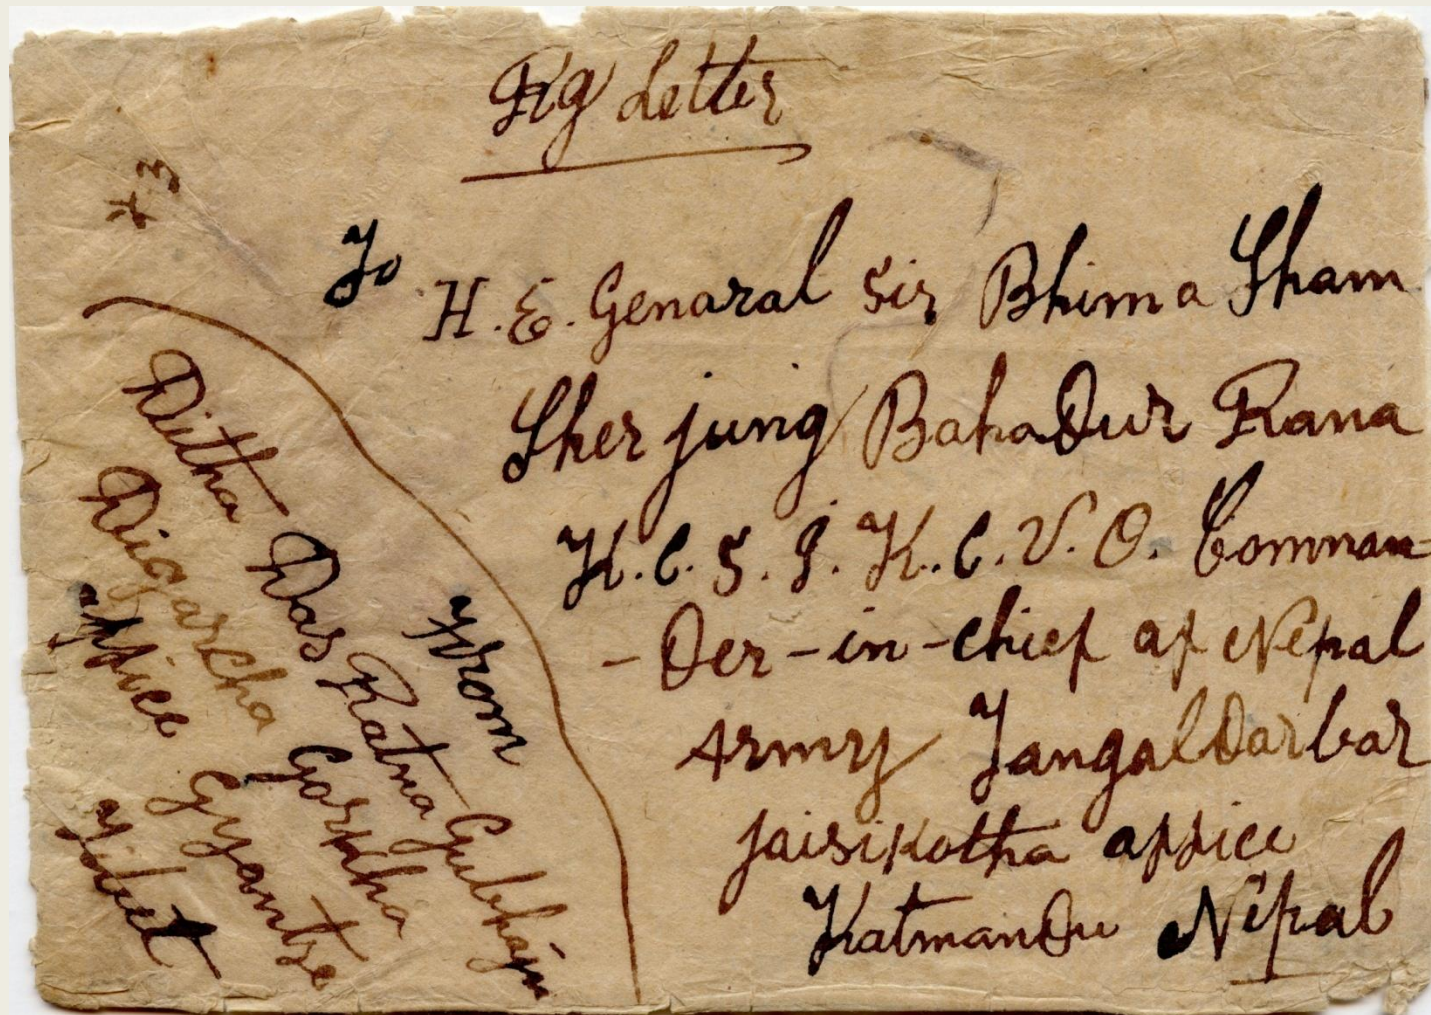 Rg Letter
To
H.E. Genaral Sir Bhima Sham
Sher jung Bahadur Rana
K.C.S.I. K.C.V.O. Comman=
-der-in-chief of Nepal
Army JangalDarbar
jaisikotha office
Katmandu Nepal
From
Ditha Das Ratna Gubhaju
Digarcha Gorkha
office Gyantse
Tibet